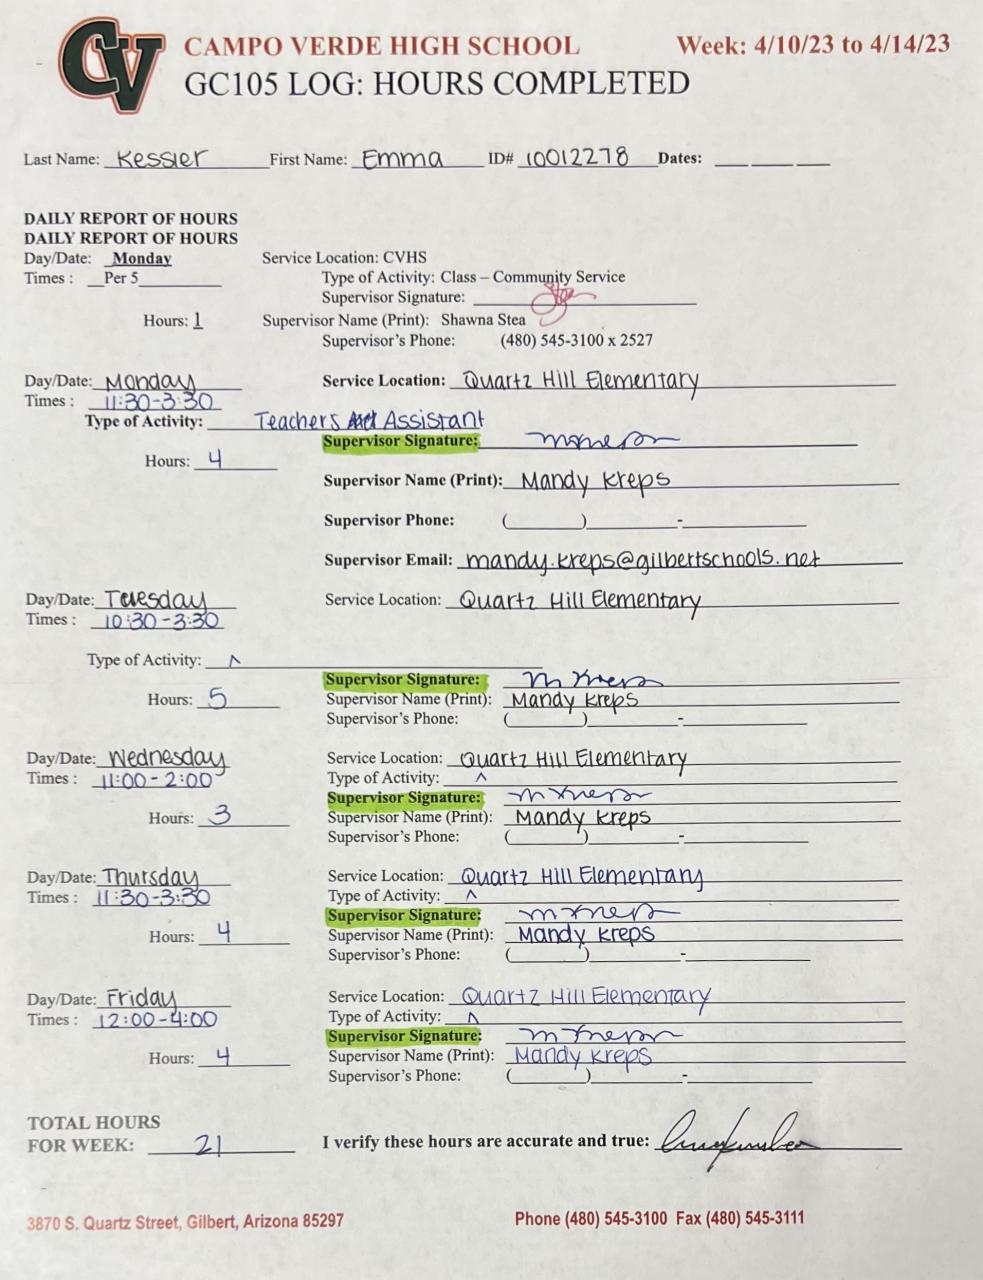 CV CAMPO VERDE HIGH SCHOOL Week: 4/10/23 to 4/14/23
GC105 LOG: HOURS COMPLETED
Last Name: Kessler First Name: Emma ID# 10012278 Dates: ____ ____ ____
DAILY REPORT OF HOURS
DAILY REPORT OF HOURS
Day/Date: Monday Service Location: CVHS
Times : Per 5 Type of Activity: Class – Community Service
Supervisor Signature: Stea
Hours: 1 Supervisor Name (Print): Shawna Stea
Supervisor's Phone: (480) 545-3100 x 2527
Day/Date: Monday Service Location: Quartz Hill Elementary
Times : 11:30-3:30
Type of Activity: Teachers Assistant
Supervisor Signature:
Hours: 4
Supervisor Name (Print): Mandy Kreps
Supervisor Phone: (____)____-____
Supervisor Email: mandy.kreps@gilbertschools.net
Day/Date: Tuesday Service Location: Quartz Hill Elementary
Times : 10:30-3:30
Type of Activity: ^
Supervisor Signature: M Kreps
Hours: 5 Supervisor Name (Print): Mandy Kreps
Supervisor's Phone: (____)____-____
Day/Date: Wednesday Service Location: Quartz Hill Elementary
Times : 11:00-2:00 Type of Activity: ^
Supervisor Signature: M Kreps
Hours: 3 Supervisor Name (Print): Mandy Kreps
Supervisor's Phone: (____)____-____
Day/Date: Thursday Service Location: Quartz Hill Elementary
Times : 11:30-3:30 Type of Activity: ^
Supervisor Signature: M Kreps
Hours: 4 Supervisor Name (Print): Mandy Kreps
Supervisor's Phone: (____)____-____
Day/Date: Friday Service Location: Quartz Hill Elementary
Times : 12:00-4:00 Type of Activity: ^
Supervisor Signature: M Kreps
Hours: 4 Supervisor Name (Print): Mandy Kreps
Supervisor's Phone: (____)____-____
TOTAL HOURS
FOR WEEK: 21 I verify these hours are accurate and true:
3870 S. Quartz Street, Gilbert, Arizona 85297 Phone (480) 545-3100 Fax (480) 545-3111